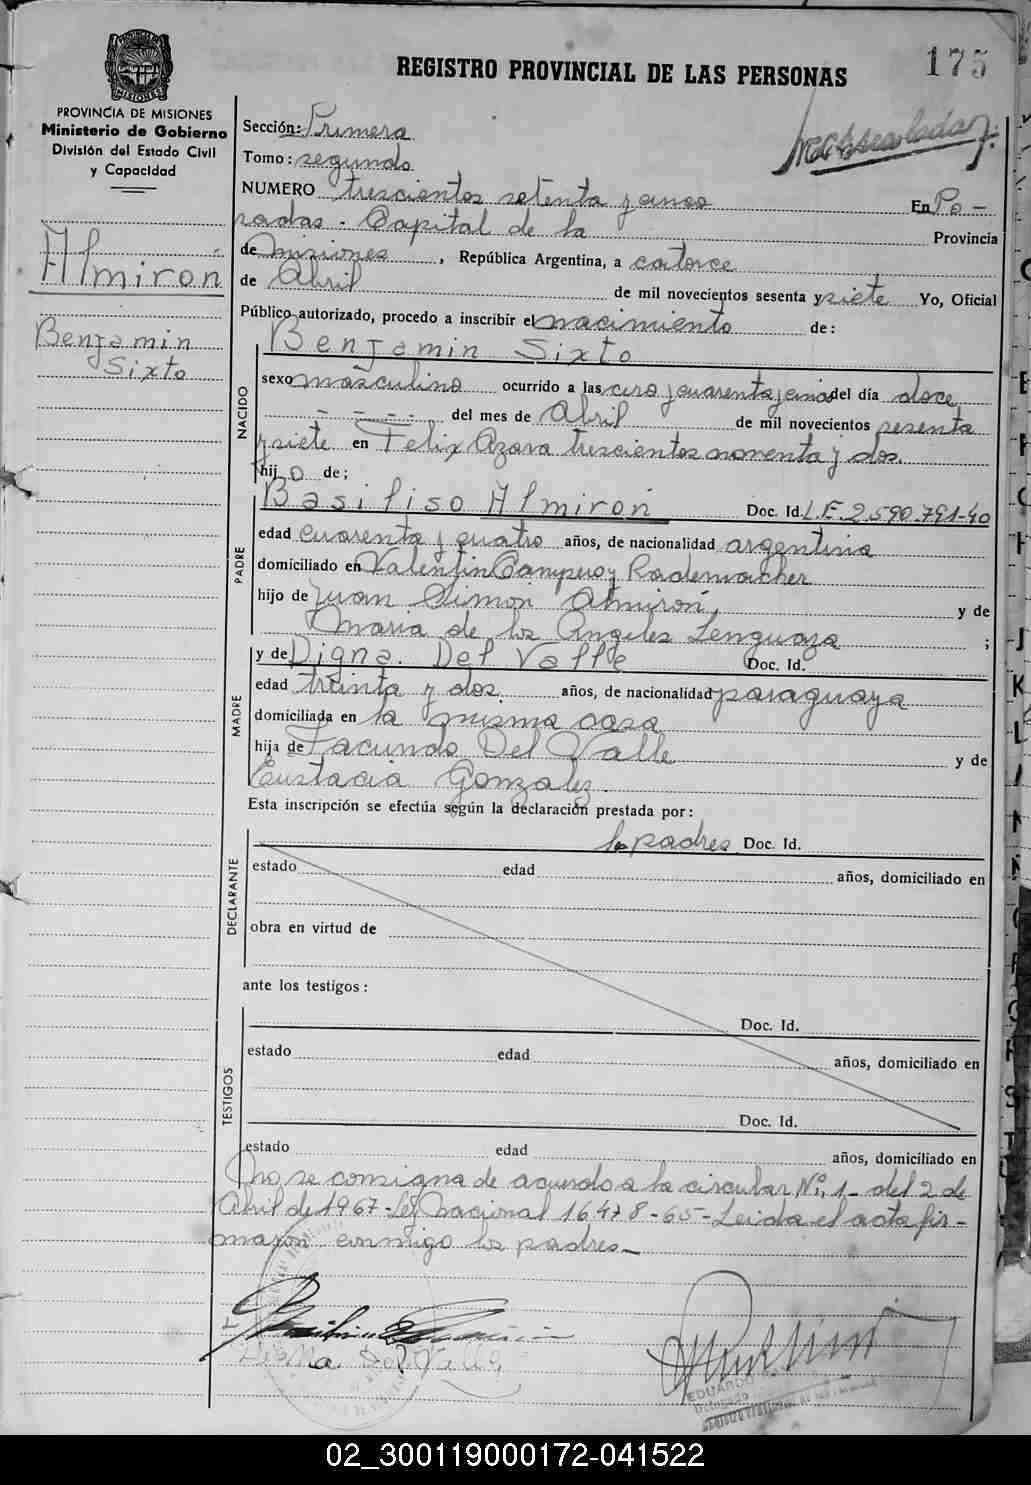 175
REGISTRO PROVINCIAL DE LAS PERSONAS
PROVINCIA DE MISIONES
Ministerio de Gobierno
División del Estado Civil
y Capacidad
Almiron
Benjamin
Sixto
Sección: Primera
Tomo: segundo
NUMERO trescientos setenta y cinco En Po-
sadas - Capital de la Provincia
de Misiones, República Argentina, a catorce
de Abril de mil novecientos sesenta y siete Yo, Oficial
Público autorizado, procedo a inscribir el nacimiento de:
NACIDO
Benjamin Sixto
sexo masculino ocurrido a las cero y cuarenta y cinco del día doce
- - - - del mes de Abril de mil novecientos sesenta
y siete en Felix Azara trescientos noventa y dos.
hijo de;
PADRE
Basiliso Almirón Doc. Id. L.E. 2.590.791-40
edad cuarenta y cuatro años, de nacionalidad argentina
domiciliado en Valentin Campero y Rademacher
hijo de Juan Simon Almirón, y de
Maria de los Angeles Lenguaza ;
MADRE
y de Digna Del Valle Doc. Id.
edad treinta y dos años, de nacionalidad paraguaya
domiciliada en la misma casa
hija de Facundo Del Valle y de
Eustacia Gonzalez.
Esta inscripción se efectúa según la declaración prestada por:
DECLARANTE
los padres Doc. Id.
estado edad años, domiciliado en
obra en virtud de
ante los testigos:
TESTIGOS
Doc. Id.
estado edad años, domiciliado en
Doc. Id.
estado edad años, domiciliado en
No se consigna de acuerdo a la circular Nº 1- del 2 de
Abril de 1967- Ley Nacional 16.478-65- Leida el acta fir-
maron conmigo los padres-
Digna Del Valle
EDUARDO
Delegado
02_300119000172-041522